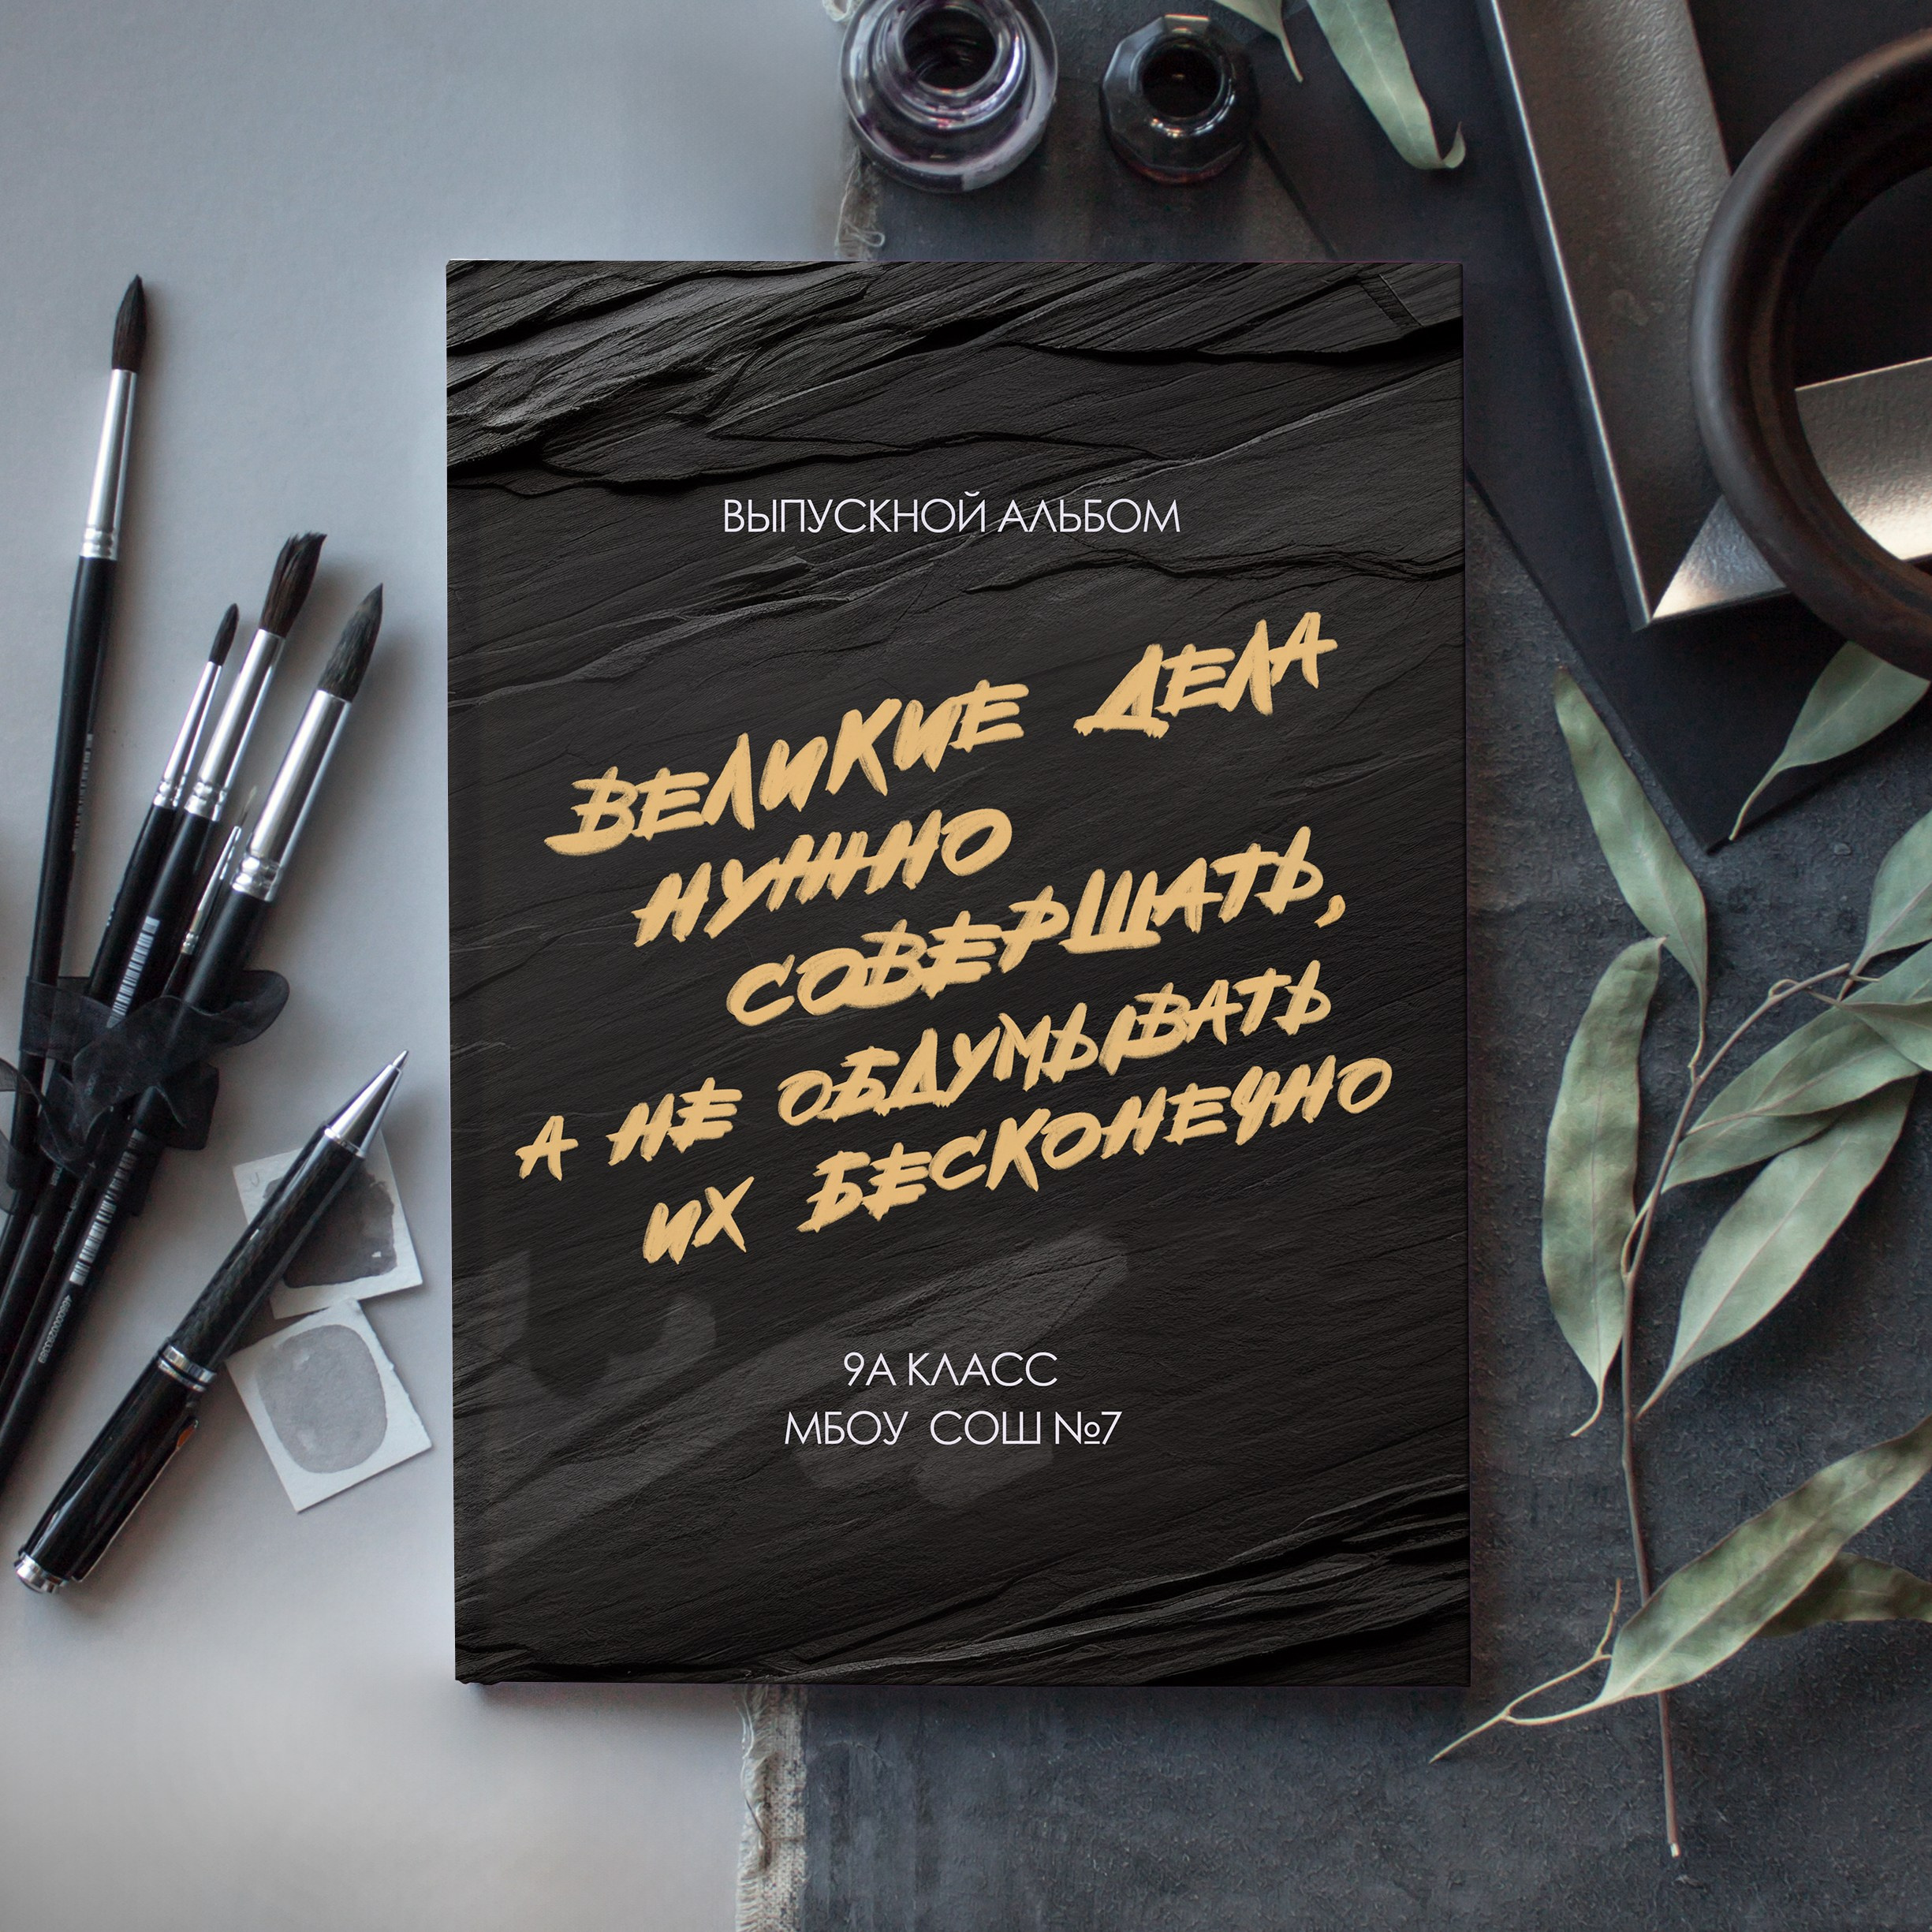 ВЫПУСКНОЙ АЛЬБОМ
ВЕЛИКИЕ ДЕЛА
НУЖНО
СОВЕРШАТЬ,
А НЕ ОБДУМЫВАТЬ
ИХ БЕСКОНЕЧНО
9А КЛАСС
МБОУ СОШ №7